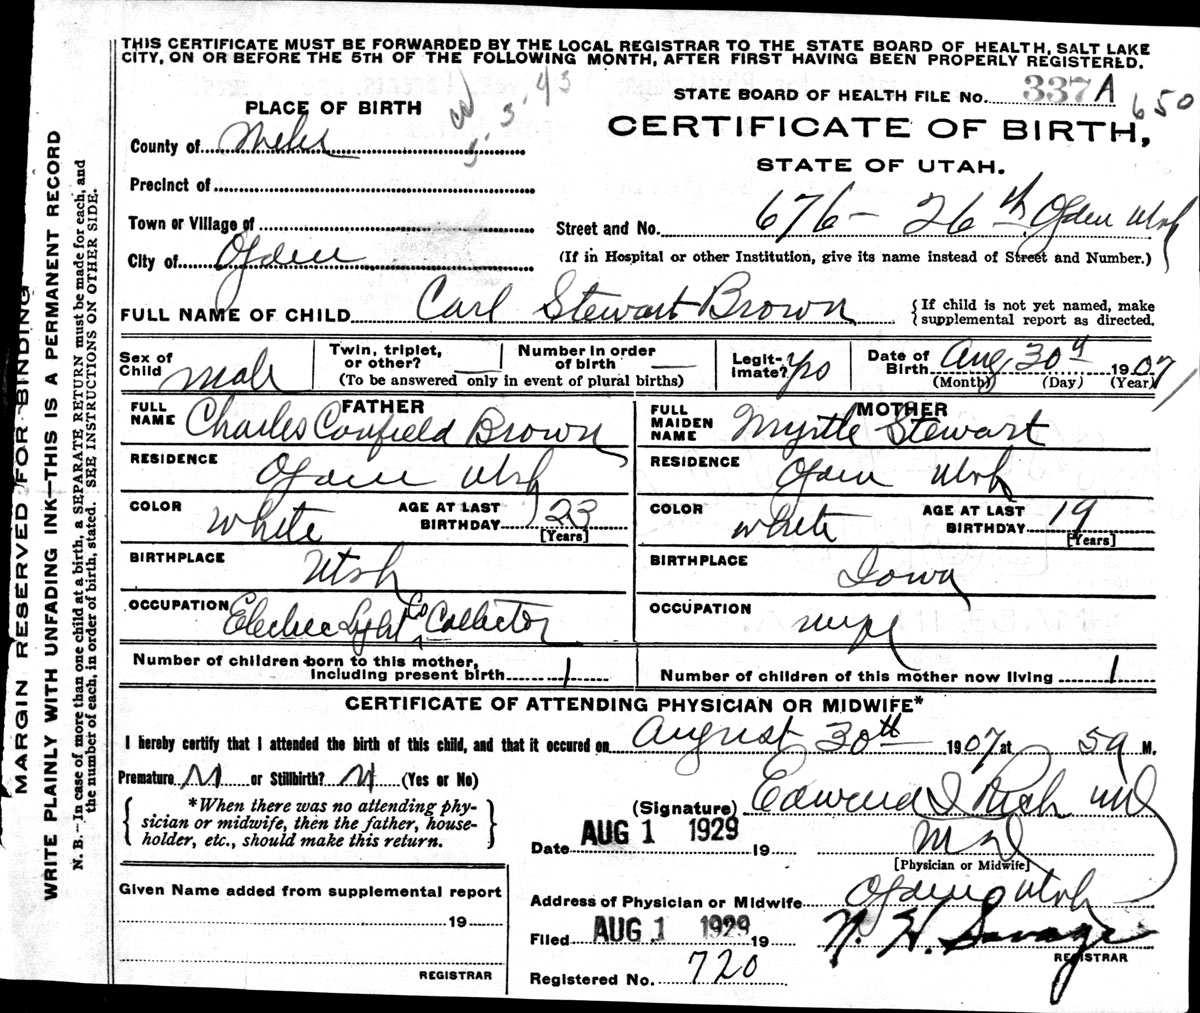 THIS CERTIFICATE MUST BE FORWARDED BY THE LOCAL REGISTRAR TO THE STATE BOARD OF HEALTH, SALT LAKE
CITY, ON OR BEFORE THE 5TH OF THE FOLLOWING MONTH, AFTER FIRST HAVING BEEN PROPERLY REGISTERED.
STATE BOARD OF HEALTH FILE No. 337 A 650
PLACE OF BIRTH
CERTIFICATE OF BIRTH,
STATE OF UTAH.
County of
Precinct of
Town or Village of
City of Ogden
Street and No. 676 - 26th Ogden Utah
(If in Hospital or other Institution, give its name instead of Street and Number.)
FULL NAME OF CHILD Carl Stewart Brown
{If child is not yet named, make
supplemental report as directed.
Sex of Child Male
Twin, triplet, or other? —
Number in order of birth —
(To be answered only in event of plural births)
Legit-imate? Yes
Date of Birth Aug 30th 1907
(Month) (Day) (Year)
FATHER
FULL NAME Charles Canfield Brown
RESIDENCE Ogden Utah
COLOR White
AGE AT LAST BIRTHDAY 23
[Years]
BIRTHPLACE Utah
OCCUPATION Electric Light Co Collector
MOTHER
FULL MAIDEN NAME Myrtle Stewart
RESIDENCE Ogden Utah
COLOR White
AGE AT LAST BIRTHDAY 19
[Years]
BIRTHPLACE Iowa
OCCUPATION
Number of children born to this mother,
including present birth 1
Number of children of this mother now living 1
CERTIFICATE OF ATTENDING PHYSICIAN OR MIDWIFE*
I hereby certify that I attended the birth of this child, and that it occured on August 30th 1907 at 5 a M.
Premature N or Stillbirth? N (Yes or No)
{*When there was no attending phy-
sician or midwife, then the father, house-
holder, etc., should make this return.}
(Signature) Edward I Rich MD
Date AUG 1 1929 19
MD
[Physician or Midwife]
Given Name added from supplemental report
19
REGISTRAR
Address of Physician or Midwife Ogden Utah
Filed AUG 1 1929 19
N. H. Savage
REGISTRAR
Registered No. 720
MARGIN RESERVED FOR BINDING
WRITE PLAINLY WITH UNFADING INK—THIS IS A PERMANENT RECORD
N. B.—In case of more than one child at a birth, a SEPARATE RETURN must be made for each, and
the number of each, in order of birth, stated. SEE INSTRUCTIONS ON OTHER SIDE.